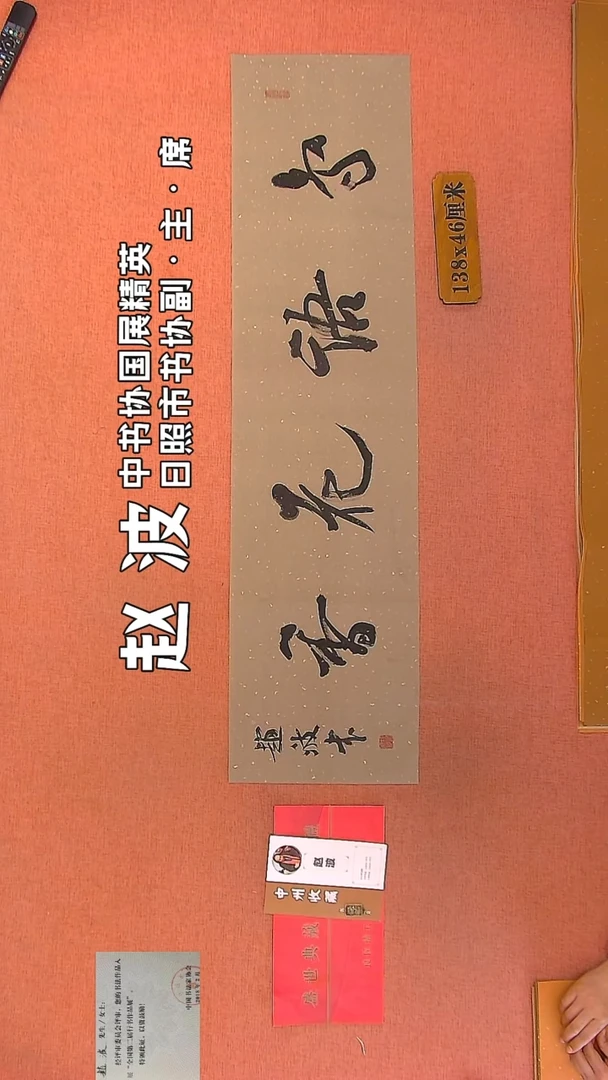 赵波
中书协国展精英
日照市书协副·主·席
鸟语花香
赵波书
138x46厘米
赵波
中州收藏
盛世典藏
赵波 先生/女士:
经评审委员会评审，您的书法作品入
展“全国第二届行书作品展”，
特颁此证，以资鼓励!
中国书法家协会